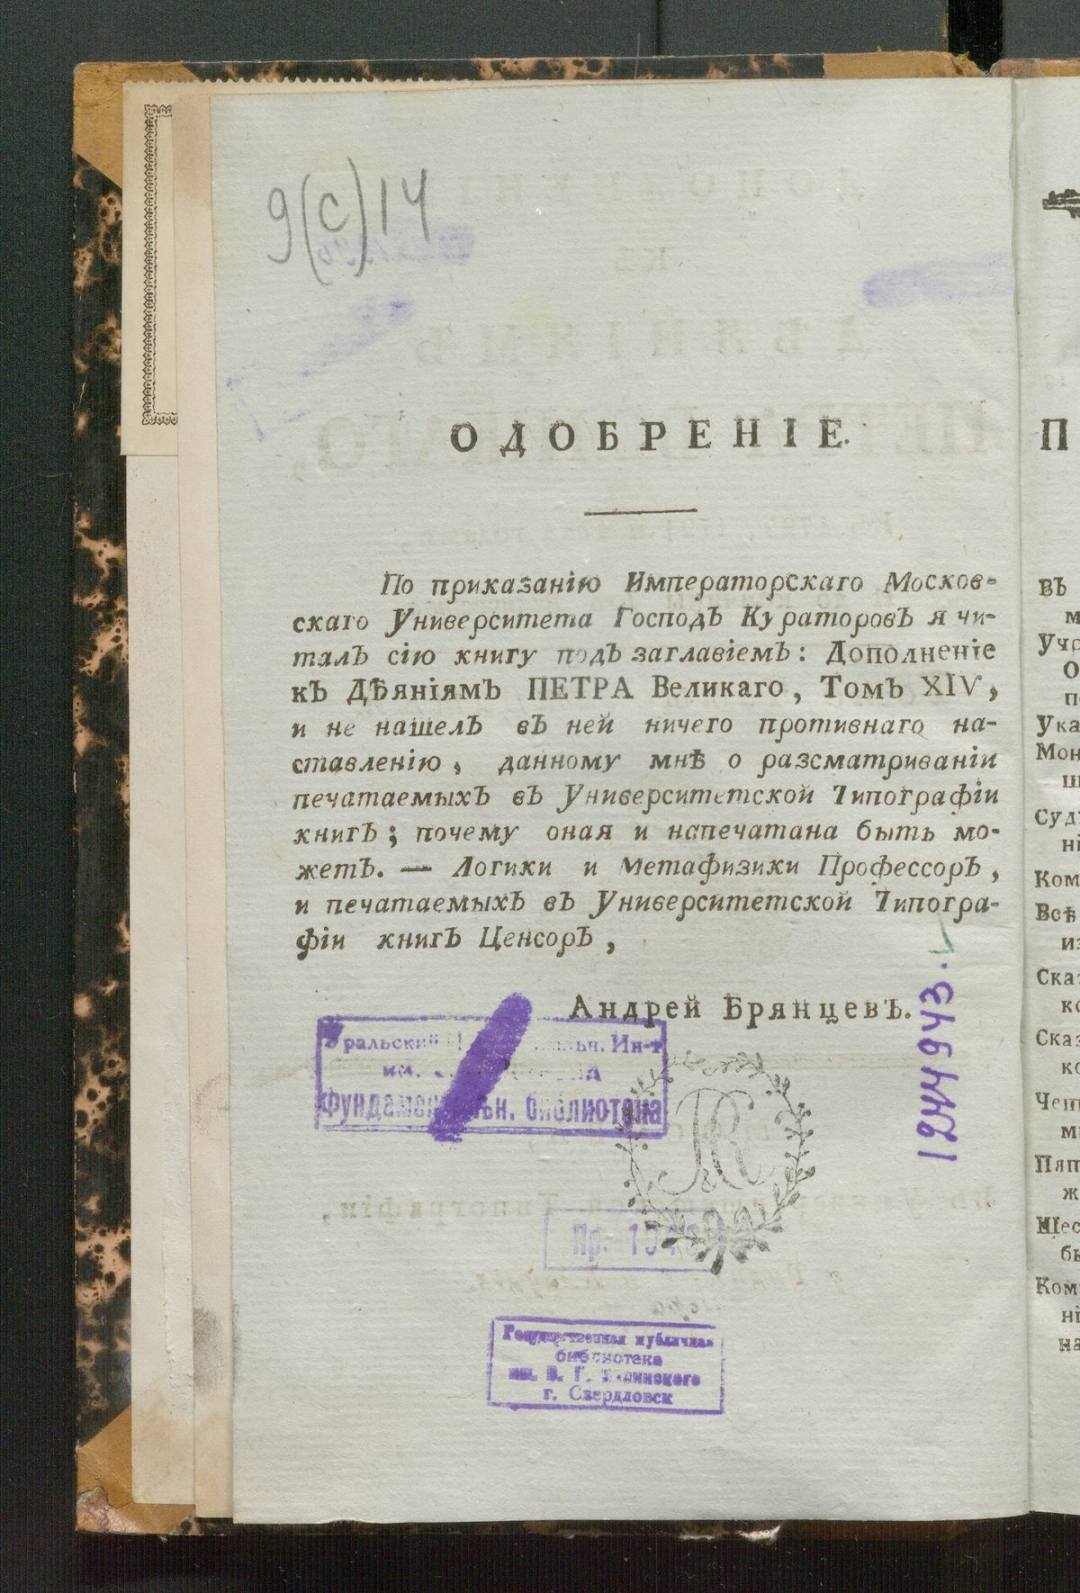 9(С)14
ОДОБРЕНІЕ.
По приказанію Императорскаго Москов-
скаго Университета Господъ Кураторовъ я чи-
талъ сію книгу подъ заглавіемъ: Дополненіе
къ Дѣяніямъ ПЕТРА Великаго, Томъ XIV,
и не нашелъ въ ней ничего противнаго на-
ставленію, данному мнѣ о разсматриваніи
печатаемыхъ въ Университетской Типографіи
книгъ; почему оная и напечатана быть мо-
жетъ. — Логики и Метафизики Профессоръ,
и печатаемыхъ въ Университетской Типогра-
фіи книгъ Ценсоръ,
Андрей Брянцевъ.
1244943
Уральский Ин-т
им.
Фундаментальн. библиотека
Пр.
Государственная публичная
библиотека
им. В. Г. Белинского
г. Свердловск
П
въ
м
Учр
О
п
Ука
Мон
ш
Суд
ні
Ком
Всѣ
из
Сказ
ко
Сказ
ко
Чет
ми
Пят
ж
Шес
бы
Ком
ні
на